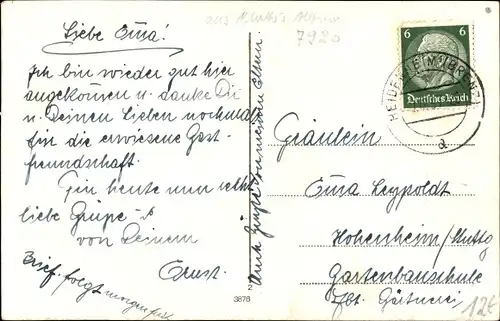 Liebe Gusa!
Ich bin wieder gut hier
angekommen u. danke Dir
u. Deinen Lieben nochmals
für die erwiesene Gast-
freundschaft.
Für heute nun recht
liebe Grüße
von Deinem
Ernst.
Brief folgt morgen
Auch Grüße von meinen Eltern
7920
6 6
Deutsches Reich
HEIDENHEIM (BRENZ)
a
Fräulein
Leypoldt
Hohenheim/Stuttg
Gartenbauschule
Abt. Gärtnerei
2
3876
12€